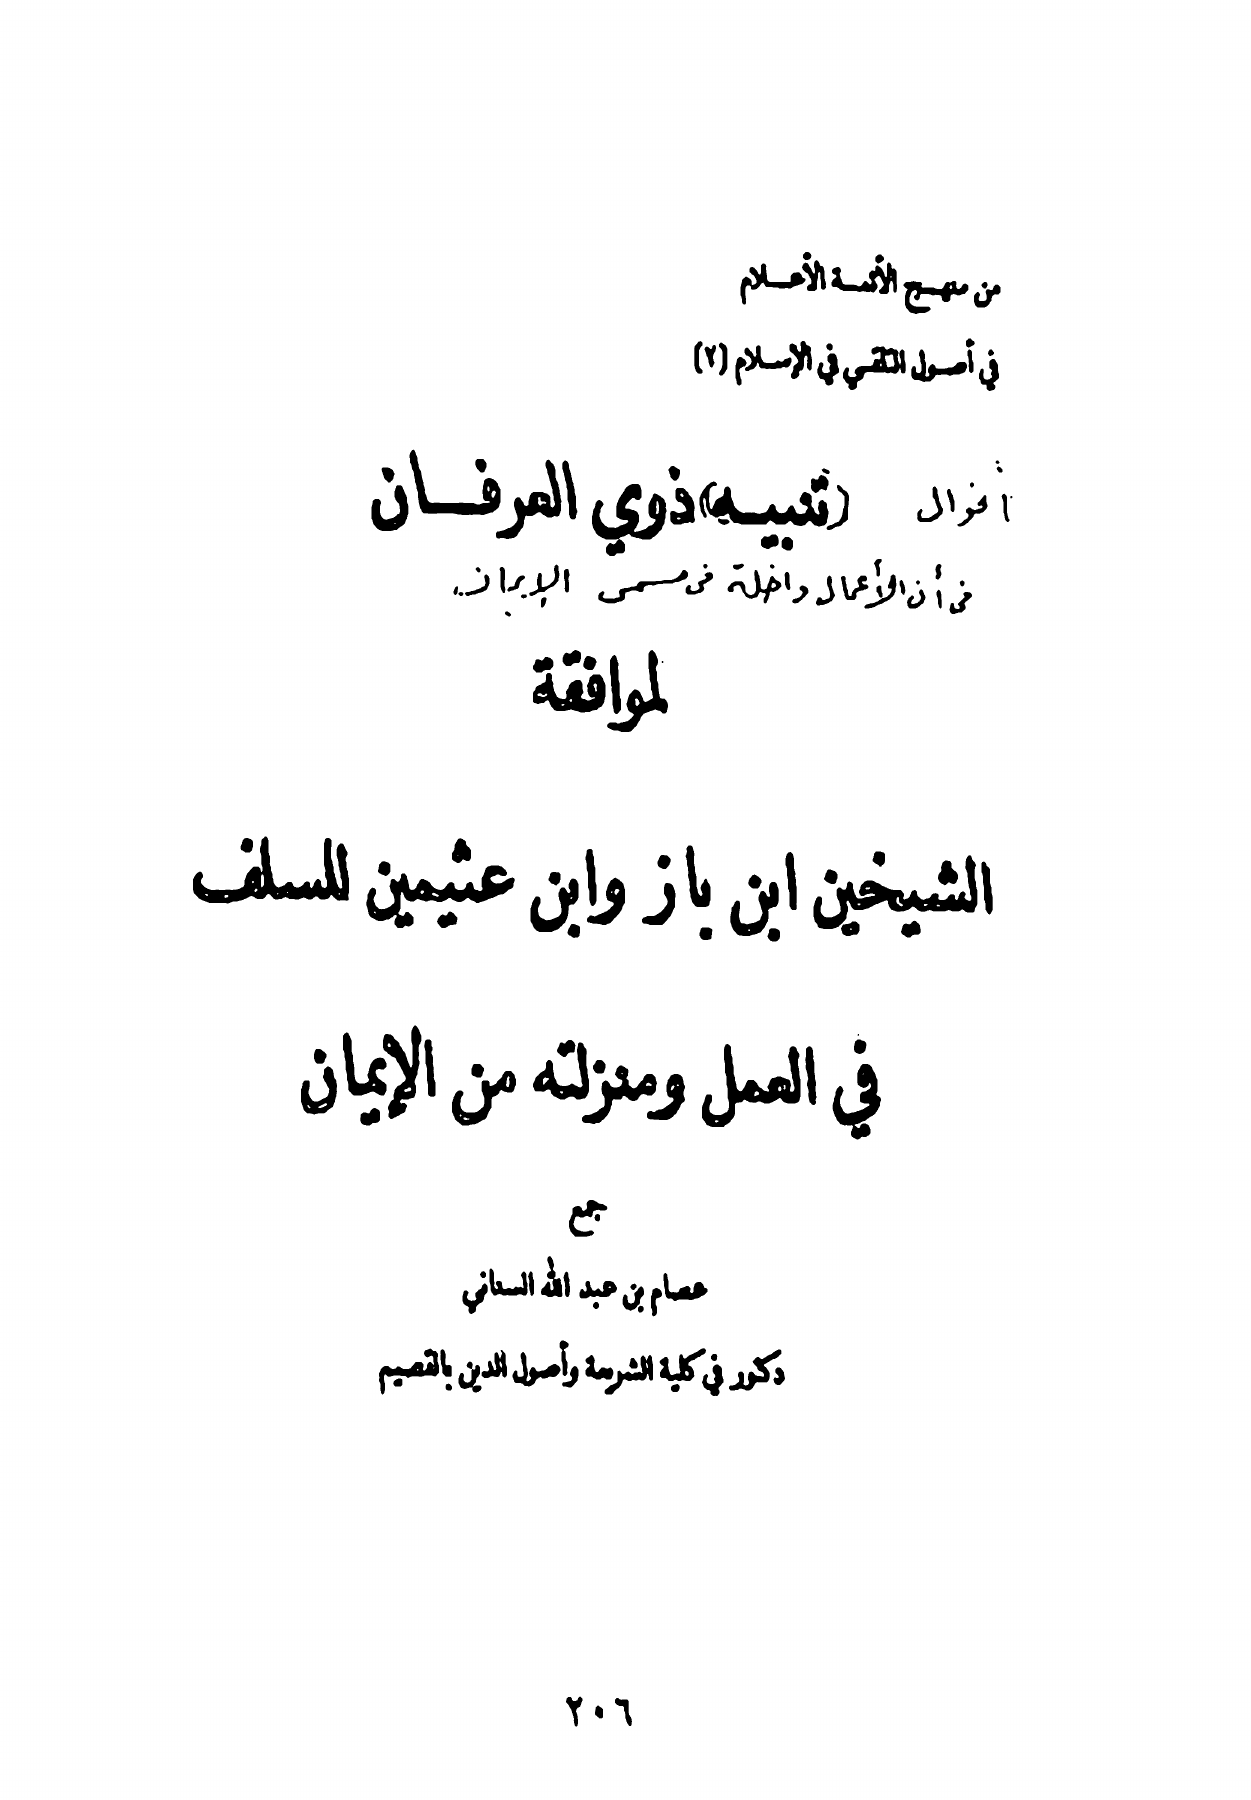 من منهج الأئمة الأعلام
في أصول التلقي في الإسلام (٢)
أقوال (تنبيه) ذوي العرفان
في أن الأعمال داخلة في مسمى الإيمان
لموافقة
الشيخين ابن باز وابن عثيمين للسلف
في العمل ومنزلته من الإيمان
جمع
عصام بن عبد الله السناني
دكتور في كلية الشريعة وأصول الدين بالقصيم
٢٠٦